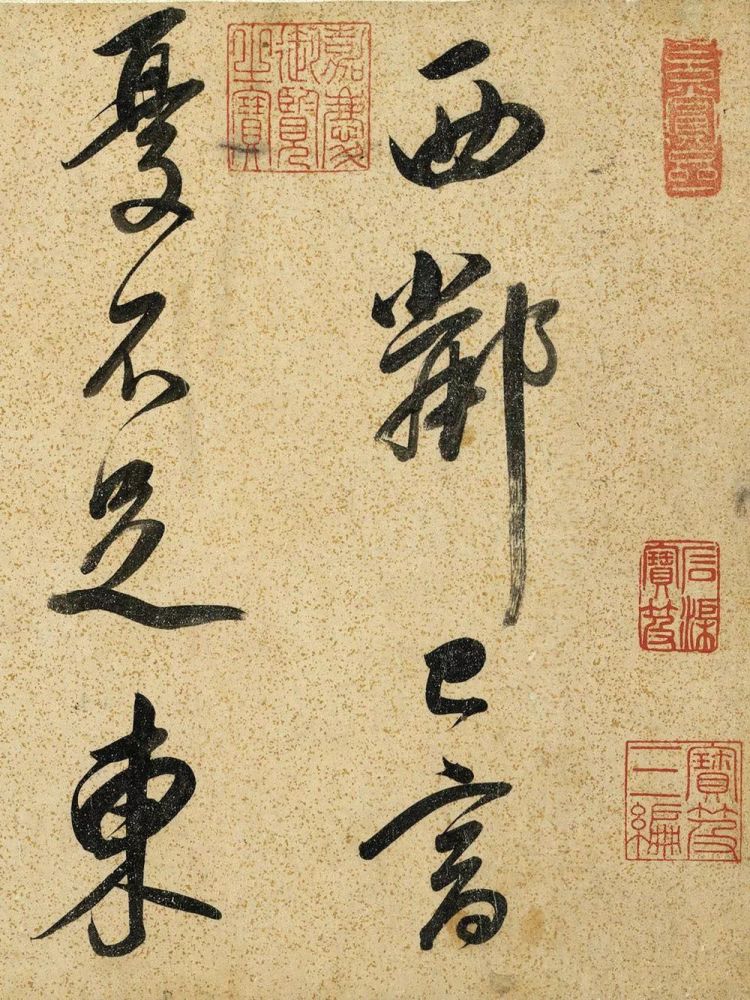 石渠寶笈
寶笈三編
西鄰已富
嘉慶御覽之寶
憂不足東